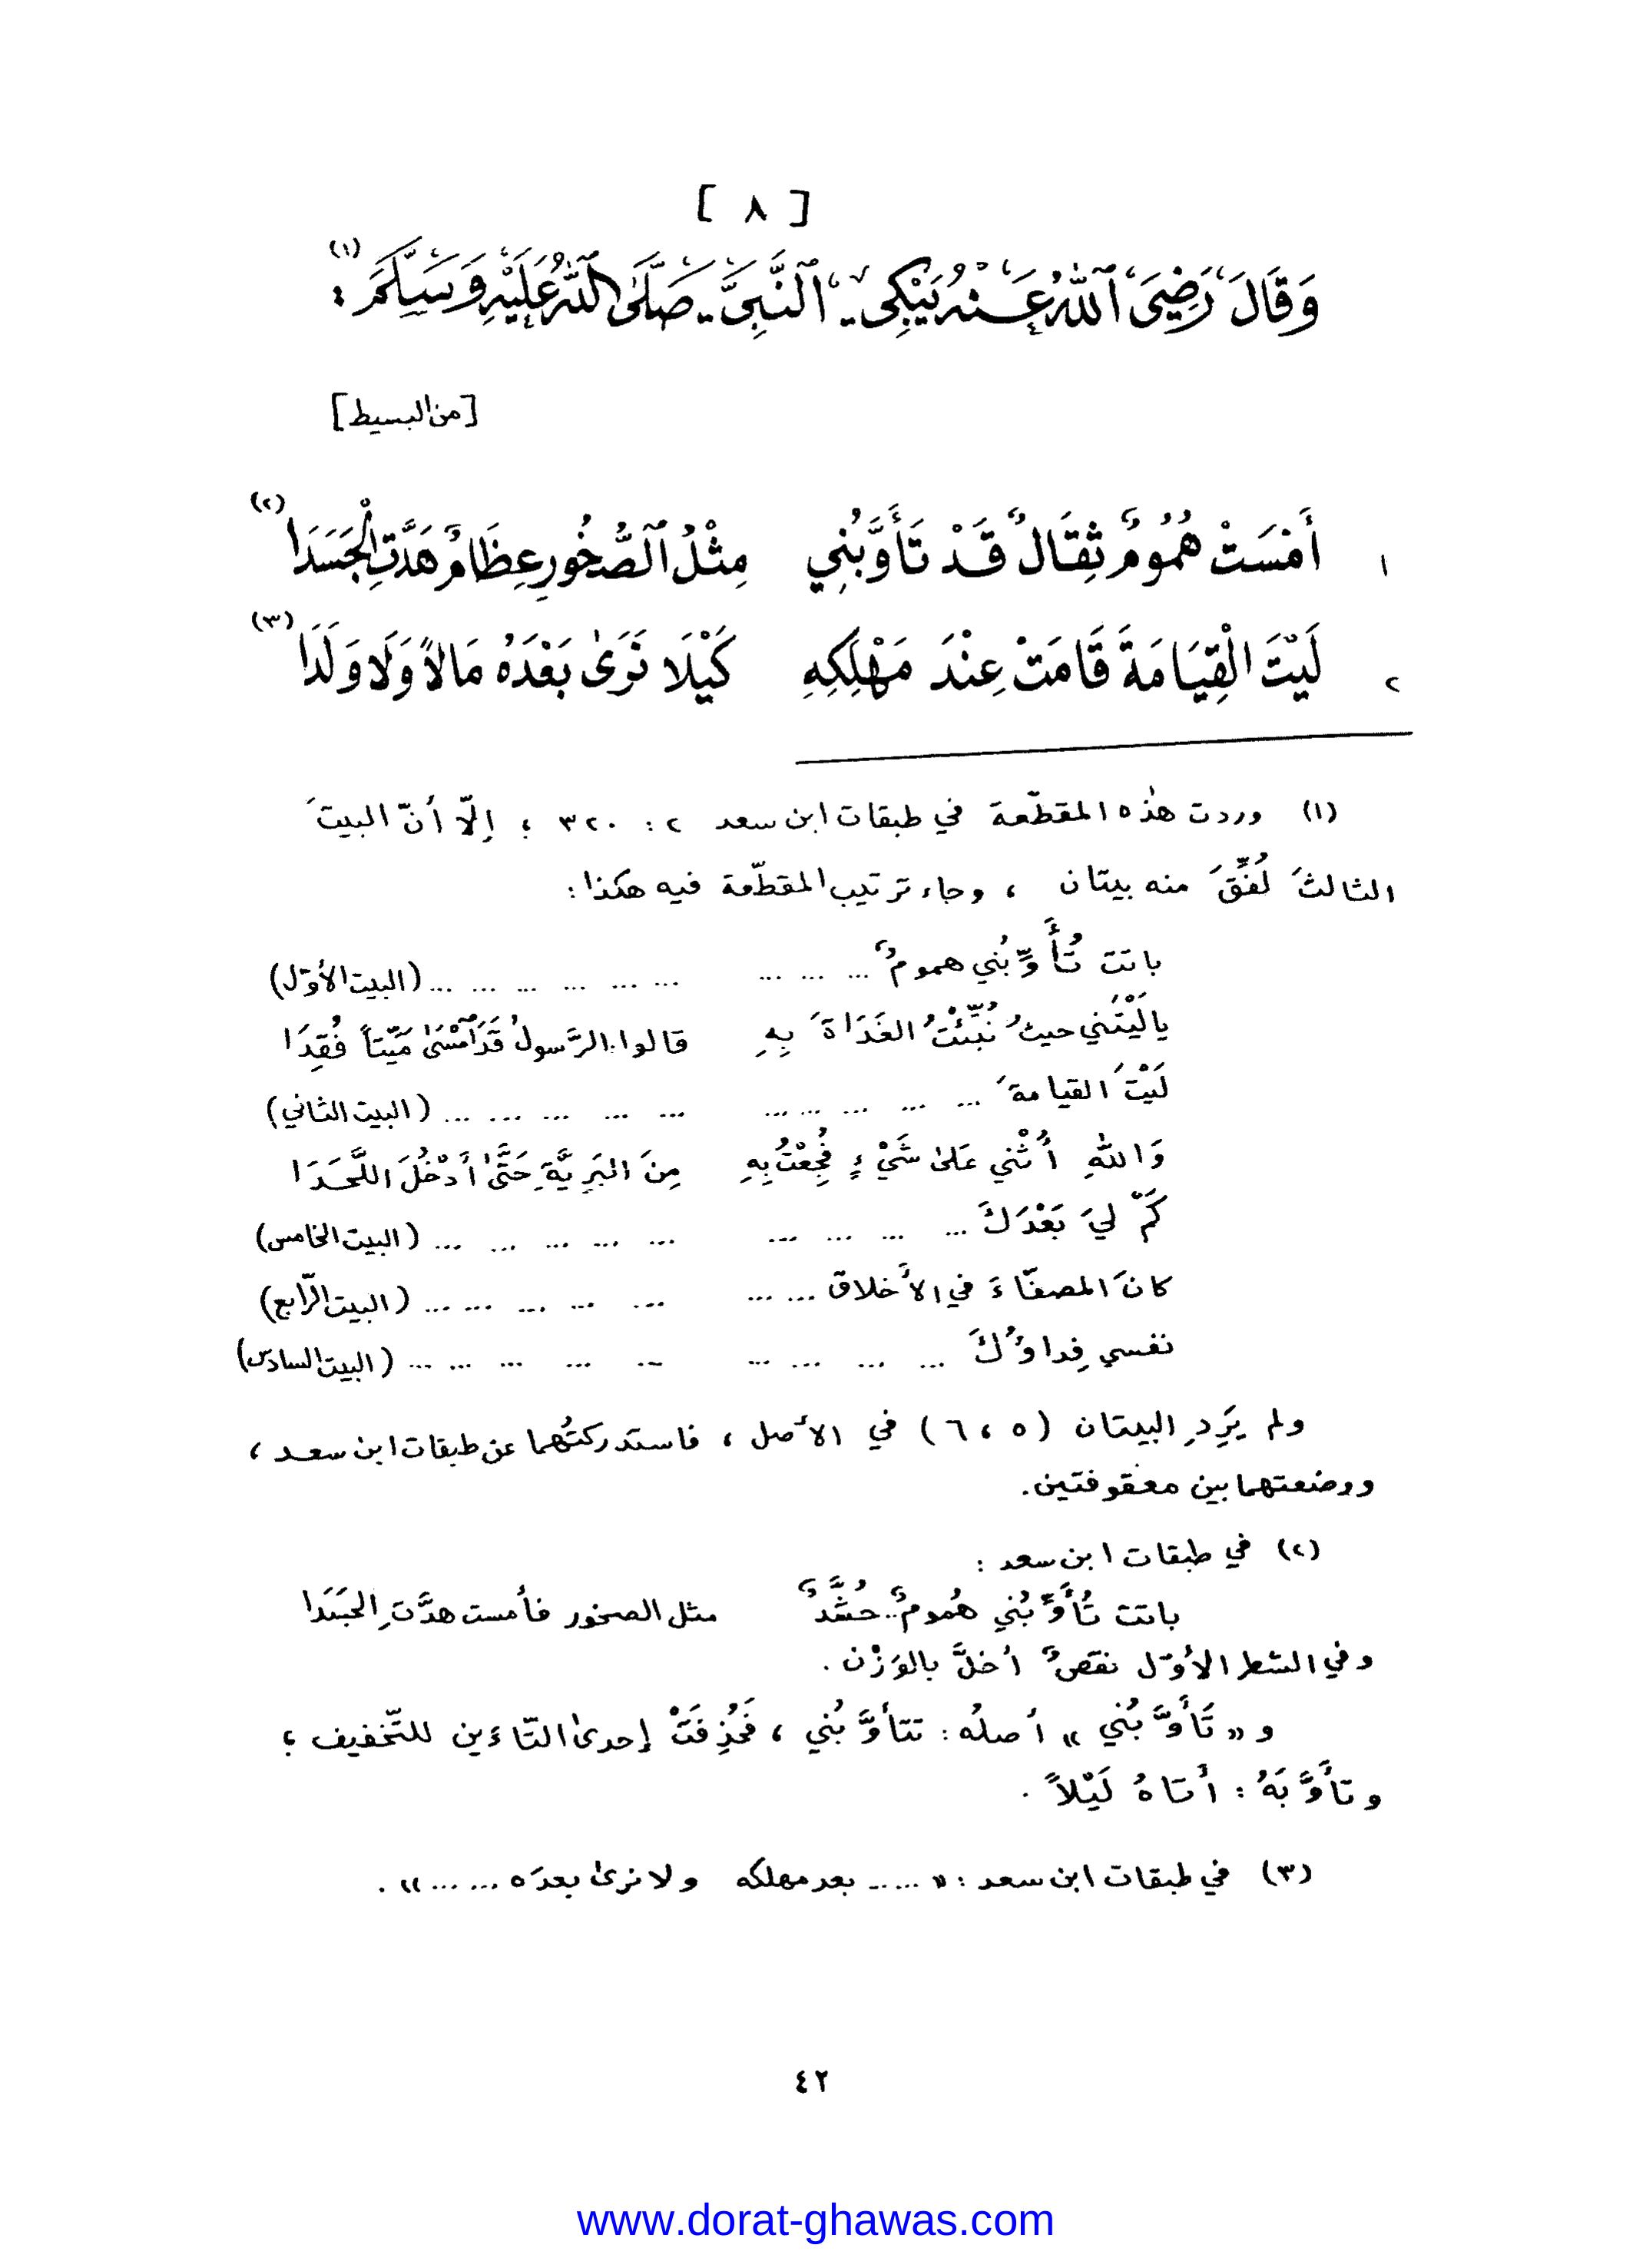 [ ٨ ]
وَقَالَ رَضِيَ ٱللَّهُ عَنْهُ يَبْكِي - ٱلنَّبِيَّ - صَلَّى ٱللَّهُ عَلَيْهِ وَسَلَّمَ : (١)
[من البسيط]
١ أَمْسَتْ هُمُومٌ ثِقَالٌ قَدْ تَأَوَّبُنِي مِثْلُ ٱلصُّخُورِ عِظَامٌ هَدَّتِ الْجَسَدَا (٢)
٢ لَيْتَ الْقِيَامَةَ قَامَتْ عِنْدَ مَهْلِكِهِ كَيْلَا نَرَىٰ بَعْدَهُ مَالاً وَلَا وَلَدَا (٣)
(١) وردت هٰذه المقطّعة في طبقات ابن سعد ٢ : ٣٢٠ ؛ إلّا أنّ البيتَ
الثالثَ لُفِّقَ منه بيتان ، وجاء ترتيب المقطّعة فيه هكذا :
باتت تُأَوِّبُني همومٌ ... ... ... ... ... ... ... ... ... (البيت الأوّل)
يا لَيْتَني حيثُ نُبِّئْتُ الغَدَاةَ بِهِ قالوا : الرَّسولُ قَدَ امْسَىٰ مَيّتاً فُقِدَا
لَيْتَ القيامةَ ... ... ... ... ... ... ... ... ... ... (البيت الثاني)
وَاللهِ أُثْني عَلىٰ شَيْءٍ فُجِعْتُ بِهِ مِنَ البَرِيَّةِ حَتَّىٰ أَدْخُلَ اللَّحَدَا
كَمْ لِيَ بَعْدَكَ ... ... ... ... ... ... ... ... ... (البيت الخامس)
كانَ المصفّاءَ في الأَخلاق ... ... ... ... ... ... ... (البيت الرّابع)
نفسي فِداؤُكَ ... ... ... ... ... ... ... ... ... (البيت السادس)
ولم يَرِدِ البيتان (٥ ، ٦) في الأصل ، فاستدركتُهما عن طبقات ابن سعد ،
ووضعتهما بين معقوفتين.
(٢) في طبقات ابن سعد :
باتت تُأَوِّبُني هُمومٌ .. حُشَّدٌ مثل الصخور فأمست هدَّتِ الجَسَدا
وفي الشطر الأوّل نقصٌ أخلَّ بالوَزْن .
و « تَأَوَّبُني » أصلُه : تتأوَّبُني ، فَحُذِفَتْ إحدىٰ التّاءَين للتّخفيف ؛
وتأَوَّبَهُ : أَتاهُ لَيْلاً .
(٣) في طبقات ابن سعد : « ... .. بعد مهلكه ولا نرىٰ بعدَه ... ... » .
٤٢
www.dorat-ghawas.com